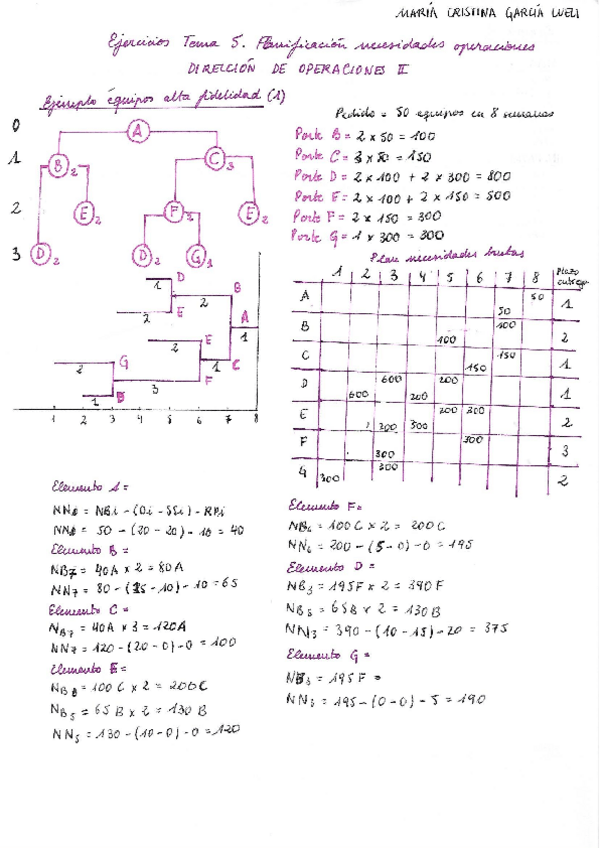 MARÍA CRISTINA GARCÍA WELI
Ejercicios Tema 5. Planificación necesidades operaciones
DIRECCIÓN DE OPERACIONES II
Ejemplo equipos alta fidelidad (1)
Pedido = 50 equipos en 8 semanas
0 A
1 B2 C3
2 E2 F2 E2
3 D2 D2 G1
Parte B = 2 x 50 = 100
Parte C = 3 x 50 = 150
Parte D = 2 x 100 + 2 x 300 = 800
Parte E = 2 x 100 + 2 x 150 = 500
Parte F = 2 x 150 = 300
Parte G = 1 x 300 = 300
D 1
B
2
E 2
A 1
E 2
C 1
G 2
F 3
D 1
1 2 3 4 5 6 7 8
Plan necesidades brutas
1 2 3 4 5 6 7 8 Plazo entrega
A 50 1
50
B 100 2
100
C 150 1
150
D 600 200 1
600 200
E 200 300 2
200 300
F 300 3
300
G 300 2
300
Elemento A =
NN8 = NBi - (Di - SSi) - RPi
NN8 = 50 - (20 - 20) - 10 = 40
Elemento B =
NB7 = 40A x 2 = 80A
NN7 = 80 - (15 - 10) - 10 = 65
Elemento C =
NB7 = 40A x 3 = 120A
NN7 = 120 - (20 - 0) - 0 = 100
Elemento E =
NB6 = 100 C x 2 = 200C
NB5 = 65 B x 2 = 130 B
NN5 = 130 - (10 - 0) - 0 = 120
Elemento F =
NB6 = 100 C x 2 = 200 C
NN6 = 200 - (5 - 0) - 0 = 195
Elemento D =
NB3 = 195F x 2 = 390 F
NB5 = 65B x 2 = 130B
NN3 = 390 - (10 - 15) - 20 = 375
Elemento G =
NB3 = 195 F =
NN3 = 195 - (0 - 0) - 5 = 190